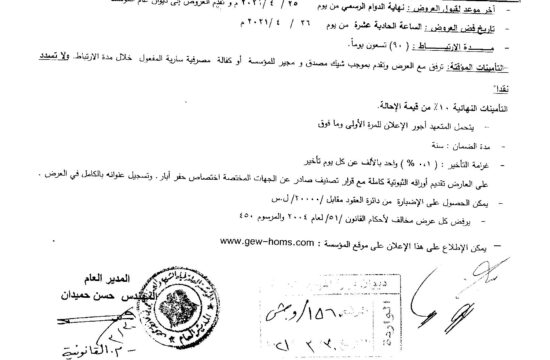 - آخر موعد لقبول العروض : نهاية الدوام الرسمي من يوم ٢٥ / ٤ / ٢٠٢١ م و تقدم العروض إلى ديوان عام
- تاريخ فض العروض : الساعة الحادية عشرة من يوم ٢٦ / ٤ / ٢٠٢١ م
- مـــدة الارتبـــاط : ( ٩٠ ) تسعون يوماً.
-التأمينات المؤقتة: ترفق مع العرض وتقدم بموجب شيك مصدق و مجير للمؤسسة أو كفالة مصرفية سارية المفعول خلال مدة الارتباط. ولا تسدد
نقداً
التأمينات النهائية ١٠% من قيمة الإحالة.
- يتحمل المتعهد أجور الإعلان للمرة الأولى وما فوق
- مدة الضمان : سنة
- غرامة التأخير : ( ٠.٠١ % ) واحد بالألف عن كل يوم تأخير
على العارض تقديم أوراقه الثبوتية كاملة مع قرار تصنيف صادر عن الجهات المختصة اختصاص حفر آبار . وتسجيل عنوانه بالكامل في العرض .
- يمكن الحصول على الإضبارة من دائرة العقود مقابل /٢٠٠٠٠/ ل.س
- يرفض كل عرض مخالف لأحكام القانون /٥١/ لعام ٢٠٠٤ والمرسوم ٤٥٠
- يمكن الإطلاع على هذا الإعلان على موقع المؤسسة : www.gew-homs.com
المدير العام
المهندس حسن حميدان
المدير العام
ديوان
الواردة
القانونية